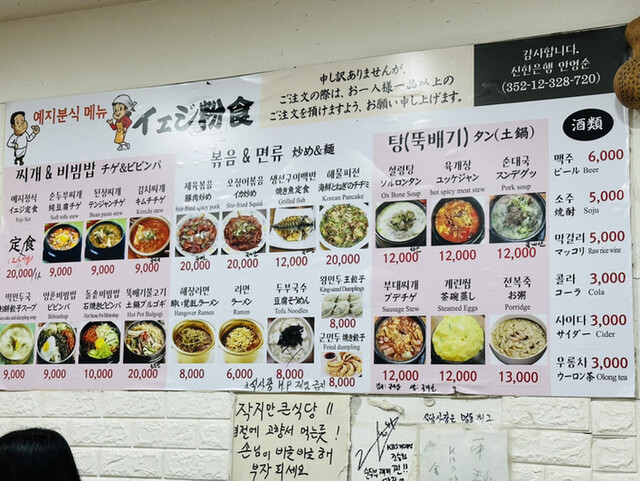 예지분식 메뉴 イェジ粉食
申し訳ありませんが、
ご注文の際は、お一人様一品以上の
ご注文を預けますよう、お願い申し上げます。
감사합니다.
신한은행 안영순
(352-12-328-720)
찌개 & 비빔밥 チゲ&ビビンバ
예지정식
イェジ定食
Yeji Set
定食
20,000
순두부찌개
純豆腐チゲ
Soft tofu stew
9,000
된장찌개
テンジャンチゲ
Bean paste stew
9,000
김치찌개
キムチチゲ
Kimchi stew
9,000
떡만두국
9,000
얌은비빔밥
ビビンバ
Bibimbap
9,000
돌솥비빔밥
石焼きビビンバ
Hot Stone Pot Bibimbap
10,000
뚝배기불고기
土鍋プルゴギ
Hot Pot Bulgogi
10,000
볶음 & 면류 炒め&麺
제육볶음
豚肉炒め
Stir-fried spicy pork
20,000
오징어볶음
イカ炒め
Stir-fried Squid
20,000
생선구이백반
焼き魚定食
Grilled fish
12,000
해물파전
海鮮とねぎのチヂミ
Korean Pancake
20,000
해장라면
酔い覚ましラーメン
Hangover Ramen
9,000
라면
ラーメン
Ramen
9,000
두부국수
豆腐そうめん
Tofu Noodles
9,000
왕만두 王餃子
King-sized Dumplings
8,000
군만두 焼き餃子
Fried dumpling
8,000
탕(뚝배기) タン(土鍋)
설렁탕
ソルロンタン
Ox Bone Soup
12,000
육개장
ユッケジャン
hot spicy meat stew
12,000
순대국
スンデグッ
Pork soup
12,000
부대찌개
プデチゲ
Sausage Stew
12,000
계란찜
茶碗蒸し
Steamed Eggs
12,000
전복죽
お粥
Porridge
13,000
酒類
맥주 6,000
ビール Beer
소주 5,000
焼酎 Soju
막걸리 5,000
マッコリ Raw rice wine
콜라 3,000
コーラ Cola
사이다 3,000
サイダー Cider
우롱차 3,000
ウーロン茶 Olong tea
작지만 큰식당 !!
명절에 고향서 먹는듯!
손님이 바글바글해
부자되세요